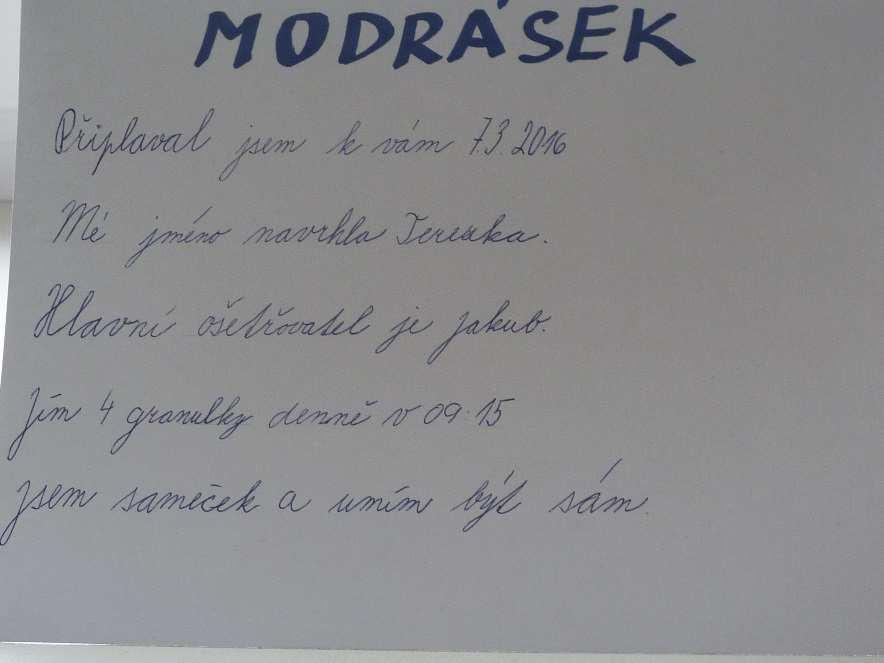 MODRÁSEK
Připlaval jsem k vám 7.3.2016
Mé jméno navrhla Terezka.
Hlavní ošetřovatel je Jakub.
Jím 4 granulky denně v 09:15
Jsem sameček a umím být sám.